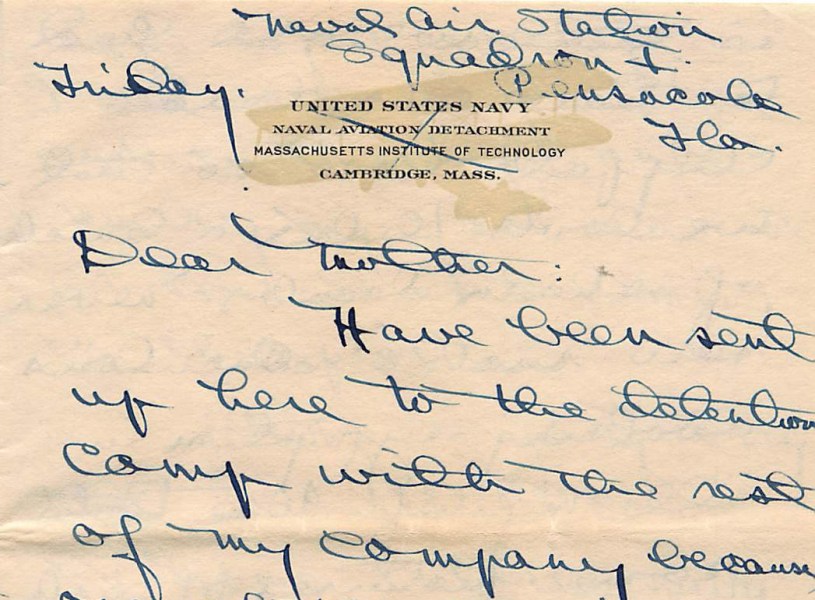 Naval Air Station
Squadron I.
Friday.
Pensacola
Fla.
UNITED STATES NAVY
NAVAL AVIATION DETACHMENT
MASSACHUSETTS INSTITUTE OF TECHNOLOGY
CAMBRIDGE, MASS.
Dear Mother:
Have been sent
up here to the detention
camp with the rest
of my company because